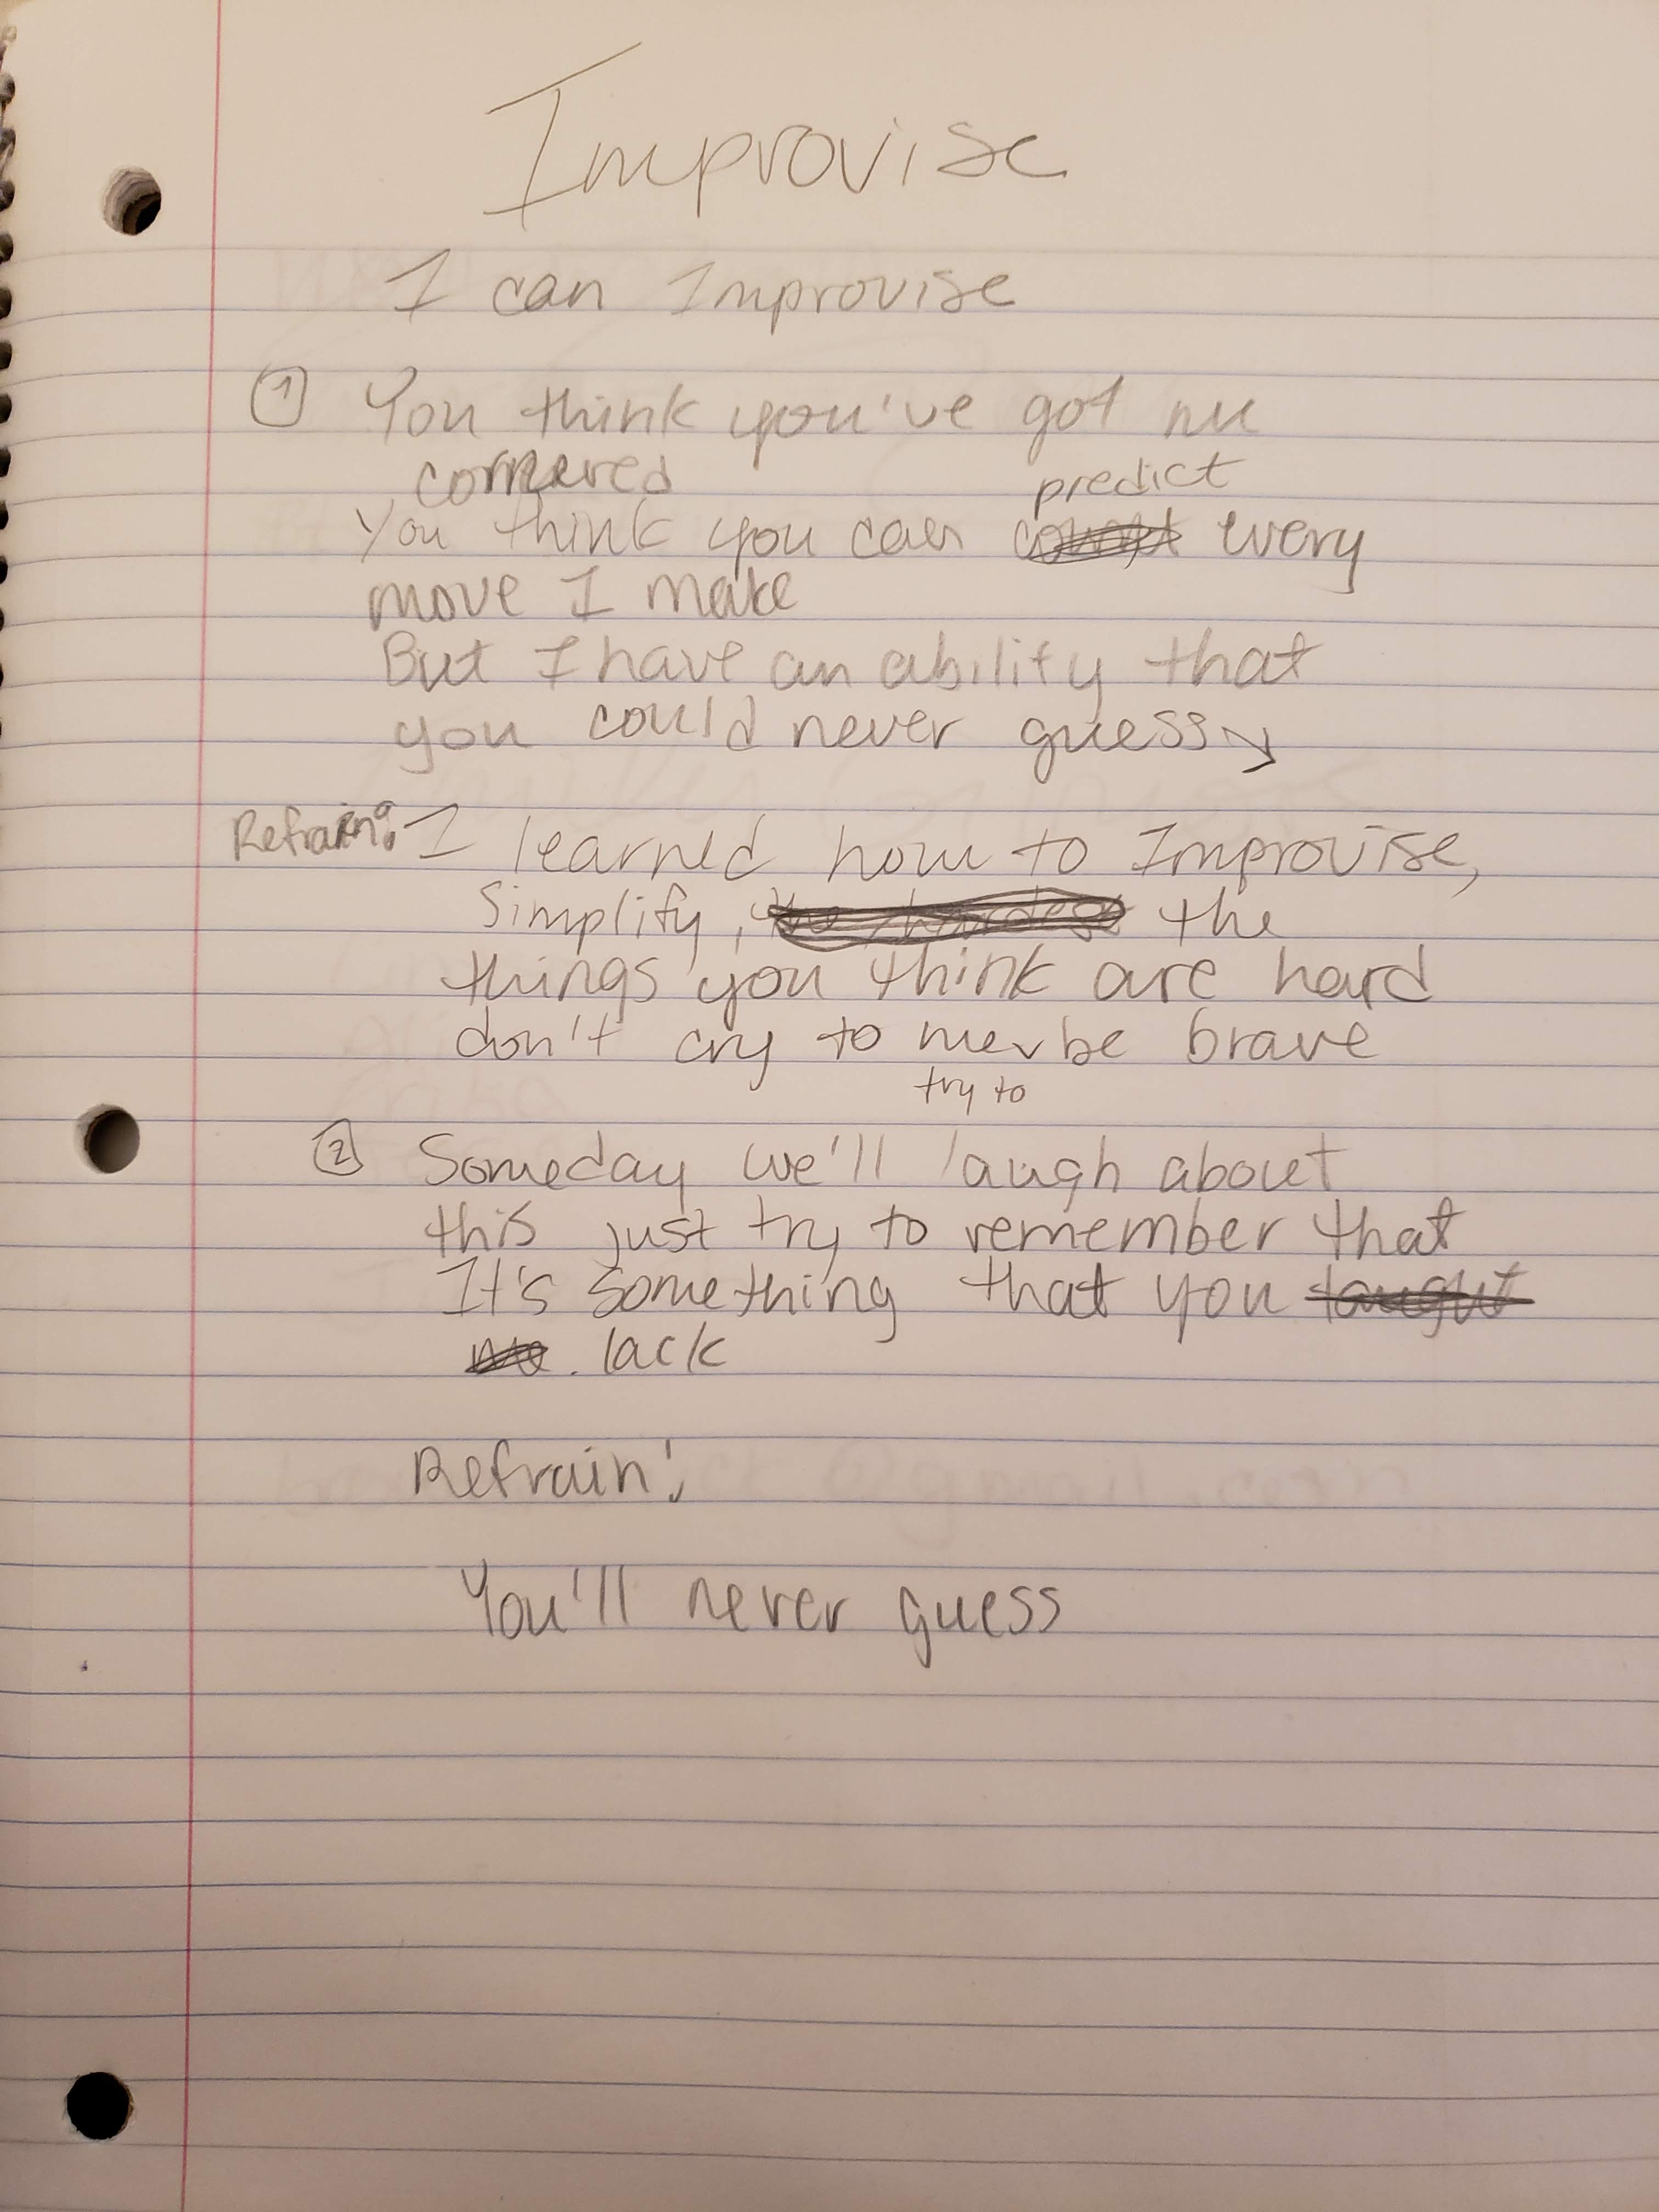 Improvise
I can Improvise
① You think you've got me
cornered
predict
You think you can count every
move I make
But I have an ability that
you could never guess ↘
Refrain: I learned how to Improvise,
Simplify, the hardest the
things you think are hard
don't cry to me ˅ be brave
try to
② Someday we'll laugh about
this just try to remember that
It's something that you taught
me. lack
Refrain:
You'll never guess